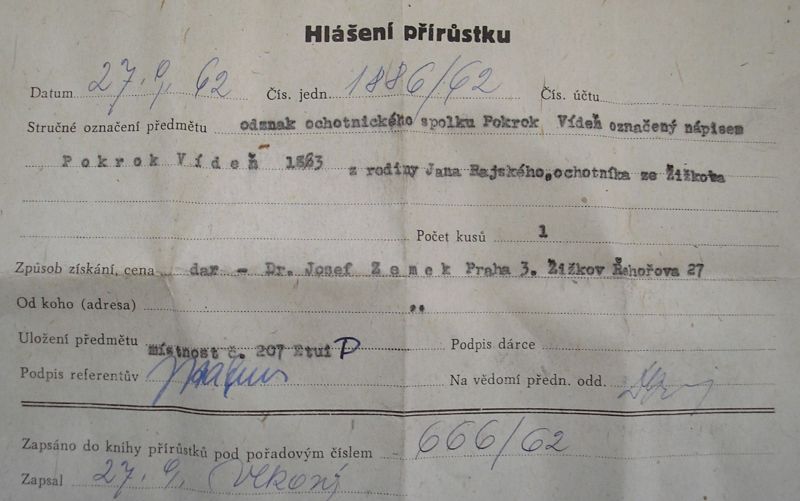 Hlášení přírůstku
Datum 27. 9. 62 Čís. jedn. 1886/62 Čís. účtu
Stručné označení předmětu odznak ochotnického spolku Pokrok Vídeň označený nápisem
Pokrok Vídeň 1863 z rodiny Jana Rajského, ochotníka ze Žižkova
Počet kusů 1
Způsob získání, cena dar - Dr. Josef Zemek Praha 3. Žižkov Řehořova 27
Od koho (adresa) "
Uložení předmětu místnost č. 207 Etui P Podpis dárce
Podpis referentův Na vědomí předn. odd.
Zapsáno do knihy přírůstků pod pořadovým číslem 666/62
Zapsal 27. 9.